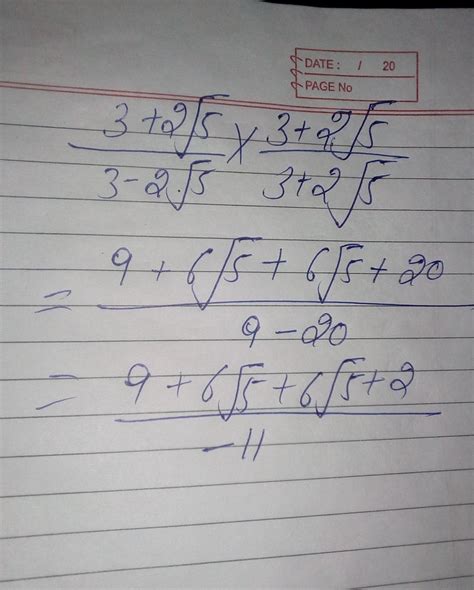 DATE : / 20
PAGE No
3+2√5 / 3-2√5 × 3+2√5 / 3+2√5
= 9+6√5+6√5+20 / 9-20
= 9+6√5+6√5+2 / -11